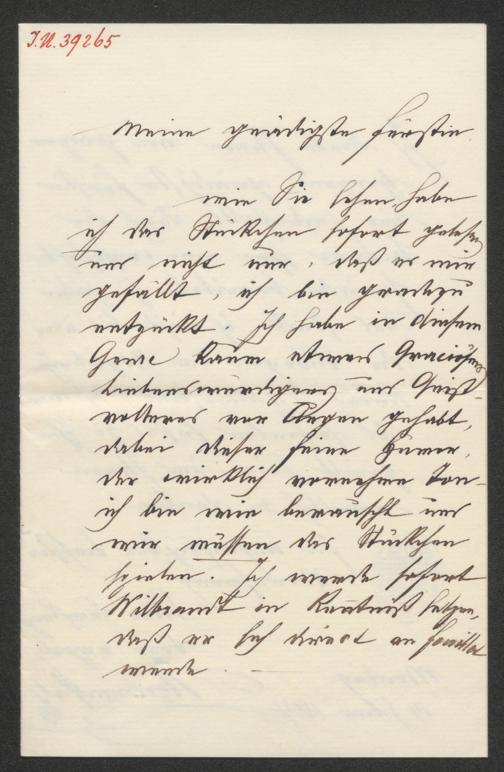 J.N. 39265
Meine gnädigste Fürstin
wie Sie sehen, habe
ich das Stückchen sofort gelesen
und nicht nur, daß es mir
gefällt, ich bin gradezu
entzückt. Ich habe in diesem
Genre kaum etwas Graciöseres
Liebenswürdigeres und Geist-
volleres vor Augen gehabt,
dabei dieser feine Humor,
der wirklich vornehme Ton -
ich bin wie berauscht und
wir müssen das Stückchen
spielen. Ich werde sofort
Wilbrandt in Kenntniß setzen,
daß er sich direct an Feuillet
wende. -